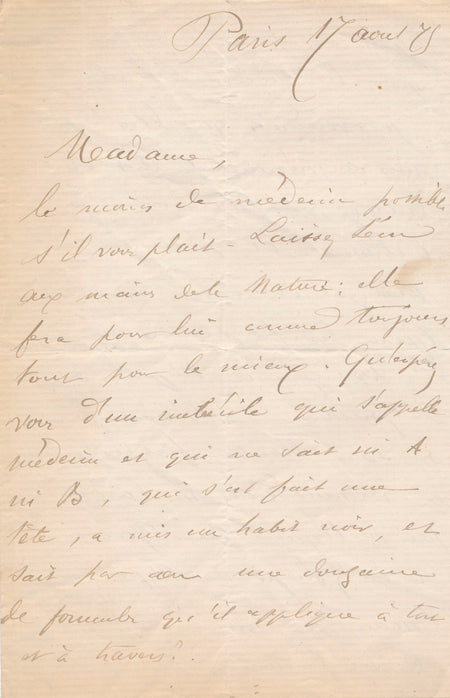 Paris 17 août 75
Madame,
le moins de médecin possible
s'il vous plait - Laissez Léon
aux mains de la Nature ; elle
fera pour lui comme toujours
tout pour le mieux. Qu'espérez
vous d'un imbécile qui s'appelle
médecin et qui ne sait ni A
ni B, qui s'est fait une
tête, a mis un habit noir, et
sait par cœur une douzaine
de formules qu'il applique à tort
et à travers ?